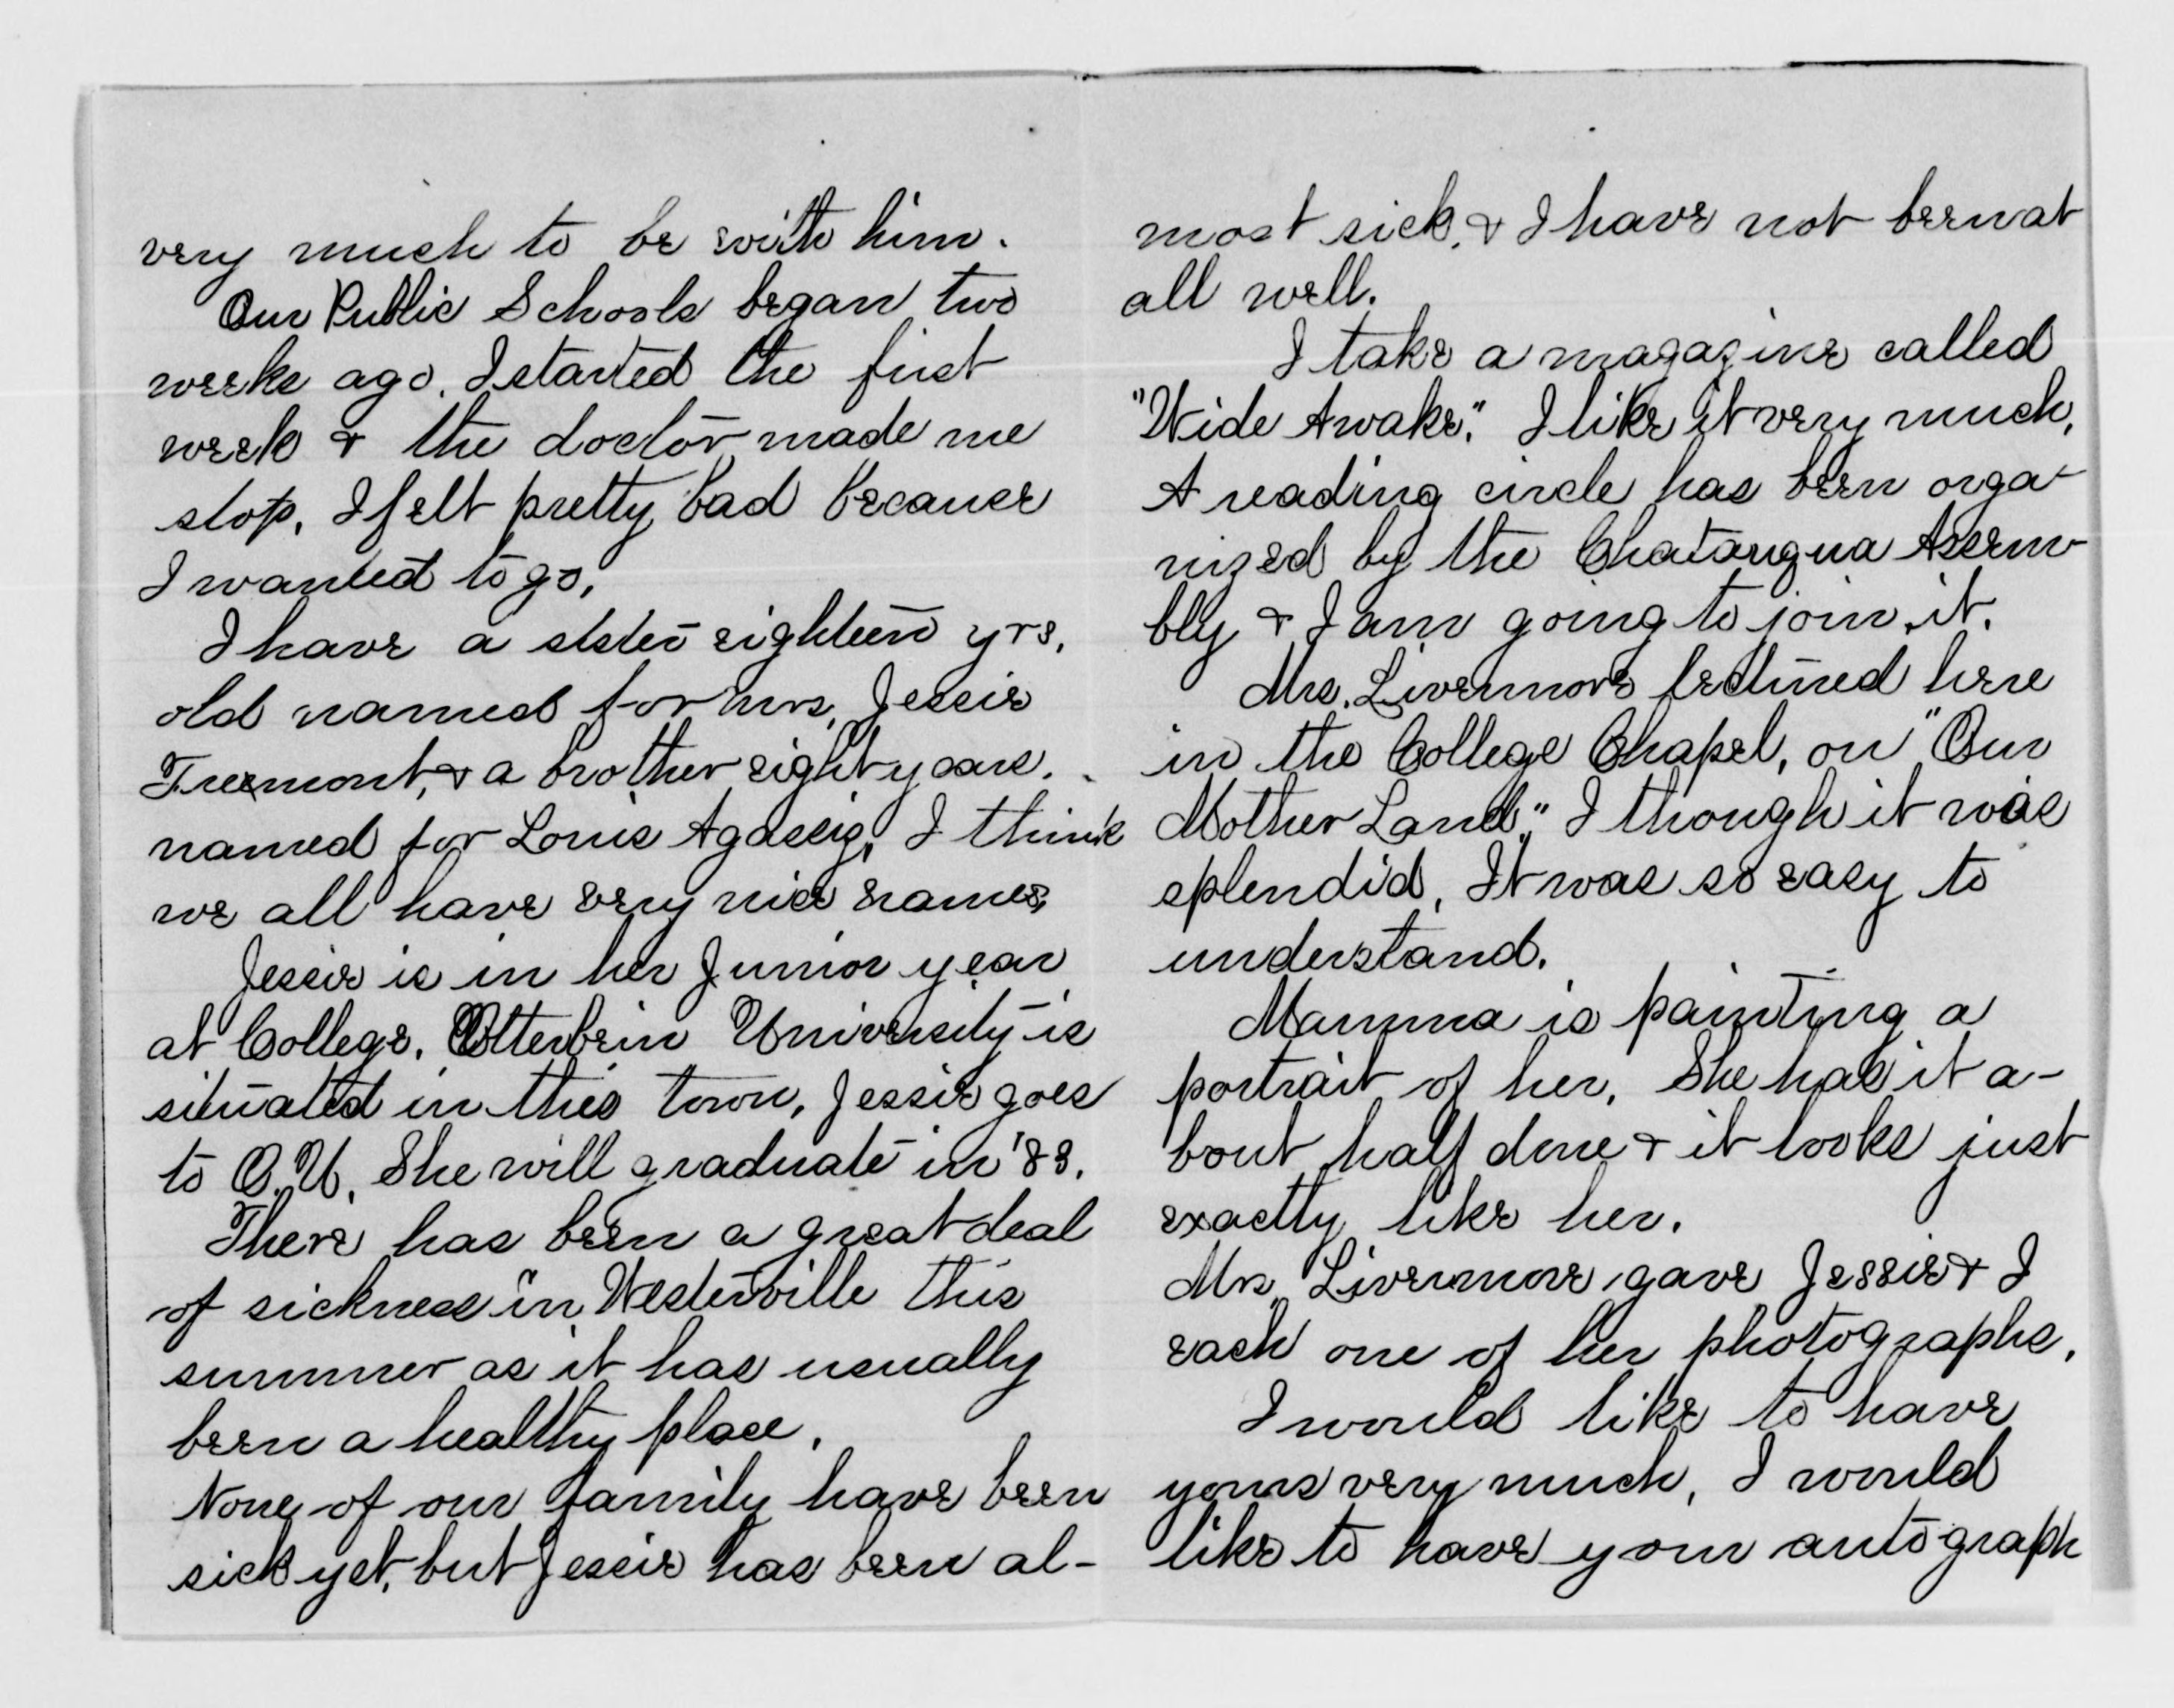 very much to be with him.
Our Public Schools began two
weeks ago. I started the first
week & the doctor made me
stop. I felt pretty bad because
I wanted to go.
I have a sister eighteen yrs.
old named for mrs. Jessie
Freemont, & a brother eight years.
named for Louis Agassiz. I think
we all have very nice names.
Jessie is in her Junior year
at College. Otterbein University is
situated in this town. Jessie goes
to O.U. She will graduate in '83.
There has been a great deal
of sickness in Westerville this
summer as it has usually
been a healthy place.
None of our family have been
sick yet, but Jessie has been al-
most sick, & I have not been at
all well.
I take a magazine called
"Wide Awake." I like it very much.
A reading circle has been orga-
nized by the Chatauqua Assem-
bly & I am going to join it.
Mrs. Livermore lectured here
in the College Chapel, on "Our
Mother Land," I though it was
splendid, It was so easy to
understand.
Mamma is painting a
portrait of her, She has it a-
bout half done & it looks just
exactly like her.
Mrs. Livermore gave Jessie & I
each one of her photographs.
I would like to have
yours very much, I would
like to have your autograph